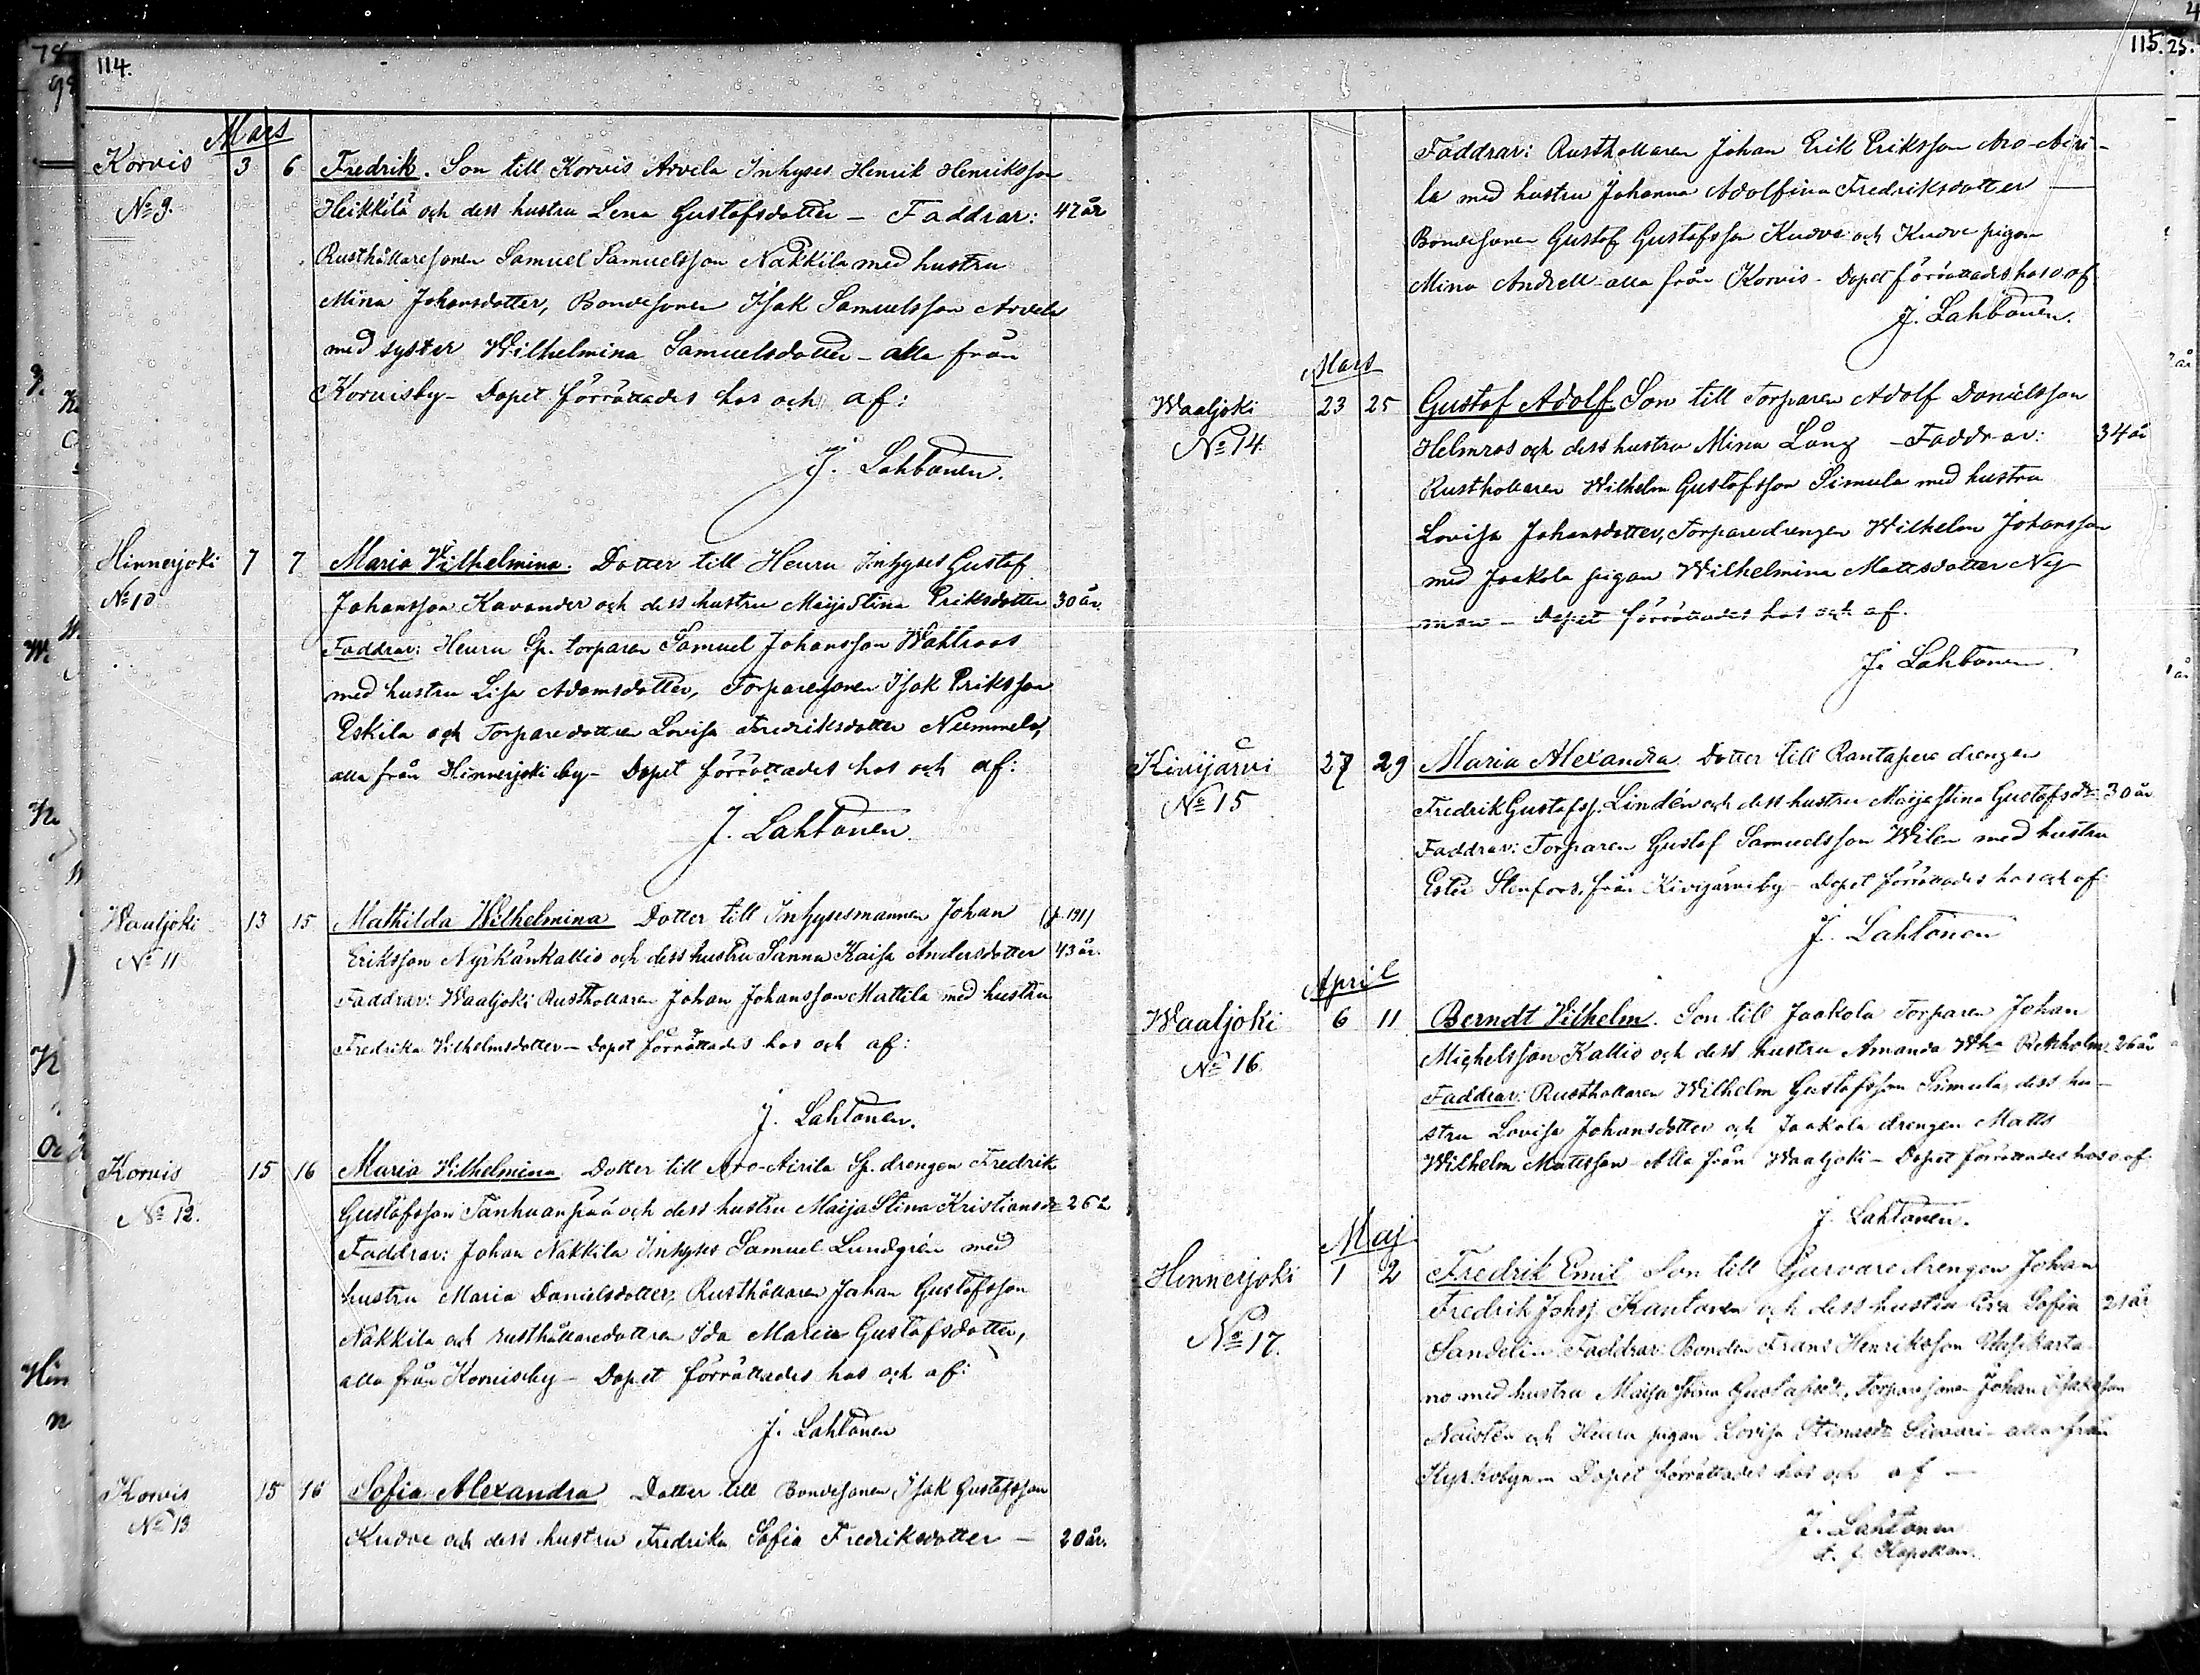 114.
Mars
Korvis 3 6 Fredrik. Son till Korvis Arvela Inhyses Henrik Henriksson
No 9. Heikkilä och dess hustru Lena Gustafsdotter – Faddrar: 42 år
Rusthållaresonen Samuel Samuelsson Nakkila med hustru
Mina Johansdotter, Bondesonen Isak Samuelsson Arvela
med syster Wilhelmina Samuelsdotter – alla från
Korvisby – Dopet förrättades hos och af:
J. Lahtonen.
Hinnerjoki 7 7 Maria Vilhelmina. Dotter till Heuru Inhyses Gustaf
No 10 Johansson Kavander och dess hustru Maija Stina Eriksdotter 30 år.
Faddrar: Heuru Sp. torparen Samuel Johansson Wahlroos
med hustru Lisa Adamsdotter, Torparesonen Isak Eriksson
Eskila och Torparedottren Lovisa Fredriksdotter Niemmela,
alla från Hinnerjoki by – Dopet förrättades hos och af:
J. Lahtonen.
Waaljoki 13 15 Mathilda Wilhelmina Dotter till Inhysesmannen Johan
No 11 Eriksson Nyrkänkallio och dess hustru Sanna Kaisa Andersdotter 43 år.
Faddrar: Waaljoki Rusthollaren Johan Johansson Mattila med hustru
Fredrika Vilhelmsdotter – Dopet förrättades hos och af:
J. Lahtonen.
Korvis 15 16 Maria Vilhelmina Dotter till Aro-Airila Sp. drengen Fredrik
No 12. Gustafsson Tanhuanpää och dess hustru Maija Stina Kristiansdr 26 år
Faddrar: Johan Nakkila Inhyses Samuel Lundgrén med
hustru Maria Danielsdotter, Rusthållaren Johan Gustafsson
Nakkila och rusthållaredottren Ida Maria Gustafsdotter,
alla från Korvisby – Dopet förrättades hos och af:
J. Lahtonen
Korvis 15 16 Sofia Alexandra Dotter till Bondesonen Isak Gustafsson
No 13 Kudve och dess hustru Fredrika Sofia Fredriksdotter – 20 år.
115.
Faddrar: Rusthollaren Johan Erik Eriksson Aro-Airi-
la med hustru Johanna Adolfina Fredriksdotter
Bondesonen Gustaf Gustafsson Kudve och Kudve pigan
Mina Andrell – alla från Korvis – Dopet förrättades hos o. af
J. Lahtonen.
Mars
Waaljoki 23 25 Gustaf Adolf Son till Torparen Adolf Danielsson
No 14. Helmros och dess hustru Mina Lång – Faddrar: 34 år
Rusthollaren Wilhelm Gustafsson Simula med hustru
Lovisa Johansdotter, Torparedrengen Wilhelm Johansson
med Jaakola pigan Wilhelmina Mattsdotter Ny-
man – Dopet förrättades hos och af.
J. Lahtonen.
Kivijärvi 27 29 Maria Alexandra. Dotter till Rantapere drengen
No 15 Fredrik Gustafss. Lindén och dess hustru Maija Stina Gustafsdr 30 år
Faddrar: Torparen Gustaf Samuelsson Wilen med hustru
Ester Stenfors, från Kivijärvi by – Dopet förrättades hos och af
J. Lahtonen
April
Waaljoki 6 11 Berndt Vilhelm. Son till Jaakola Torparen Johan
No 16. Michelsson Kallio och dess hustru Amanda Wha 26 år
Faddrar: Rusthollaren Wilhelm Gustafsson Simula, dess hu-
stru Lovisa Johansdotter och Jaakola drengen Matts
Wilhelm Mattsson – Alla från Waaljoki – Dopet förrättades hos o. af
J. Lahtonen.
Maj
Hinnerjoki 1 2 Fredrik Emil Son till Garvare drengen Johan
No 17. Fredrik Johss. Kantonen och dess hustru Eva Sofia 21 år
Sandelin Faddrar: Bonden Frans Henriksson Uusikarta-
no med hustru Maija Stina Gustafsdr, Torparesonen Johan Isaksson
och Heuru pigan Lovisa – alla från
Kyrkobyn – Dopet förrättades hos och af –
J. Lahtonen
t. f. Kapellan.